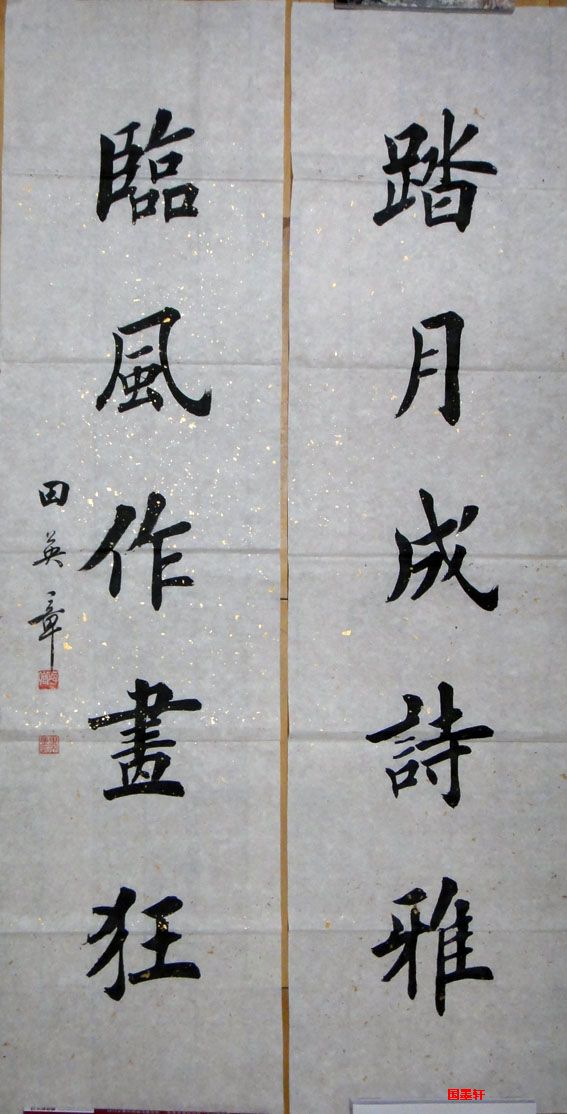 踏月成詩雅
臨風作畫狂
田英章
国墨轩